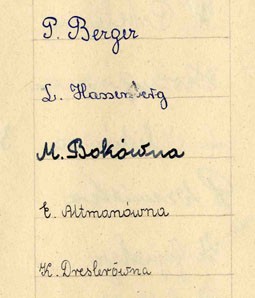 P. Berger
L. Hassenberg
M. Bokówna
E. Altmanówna
K. Dreslerówna